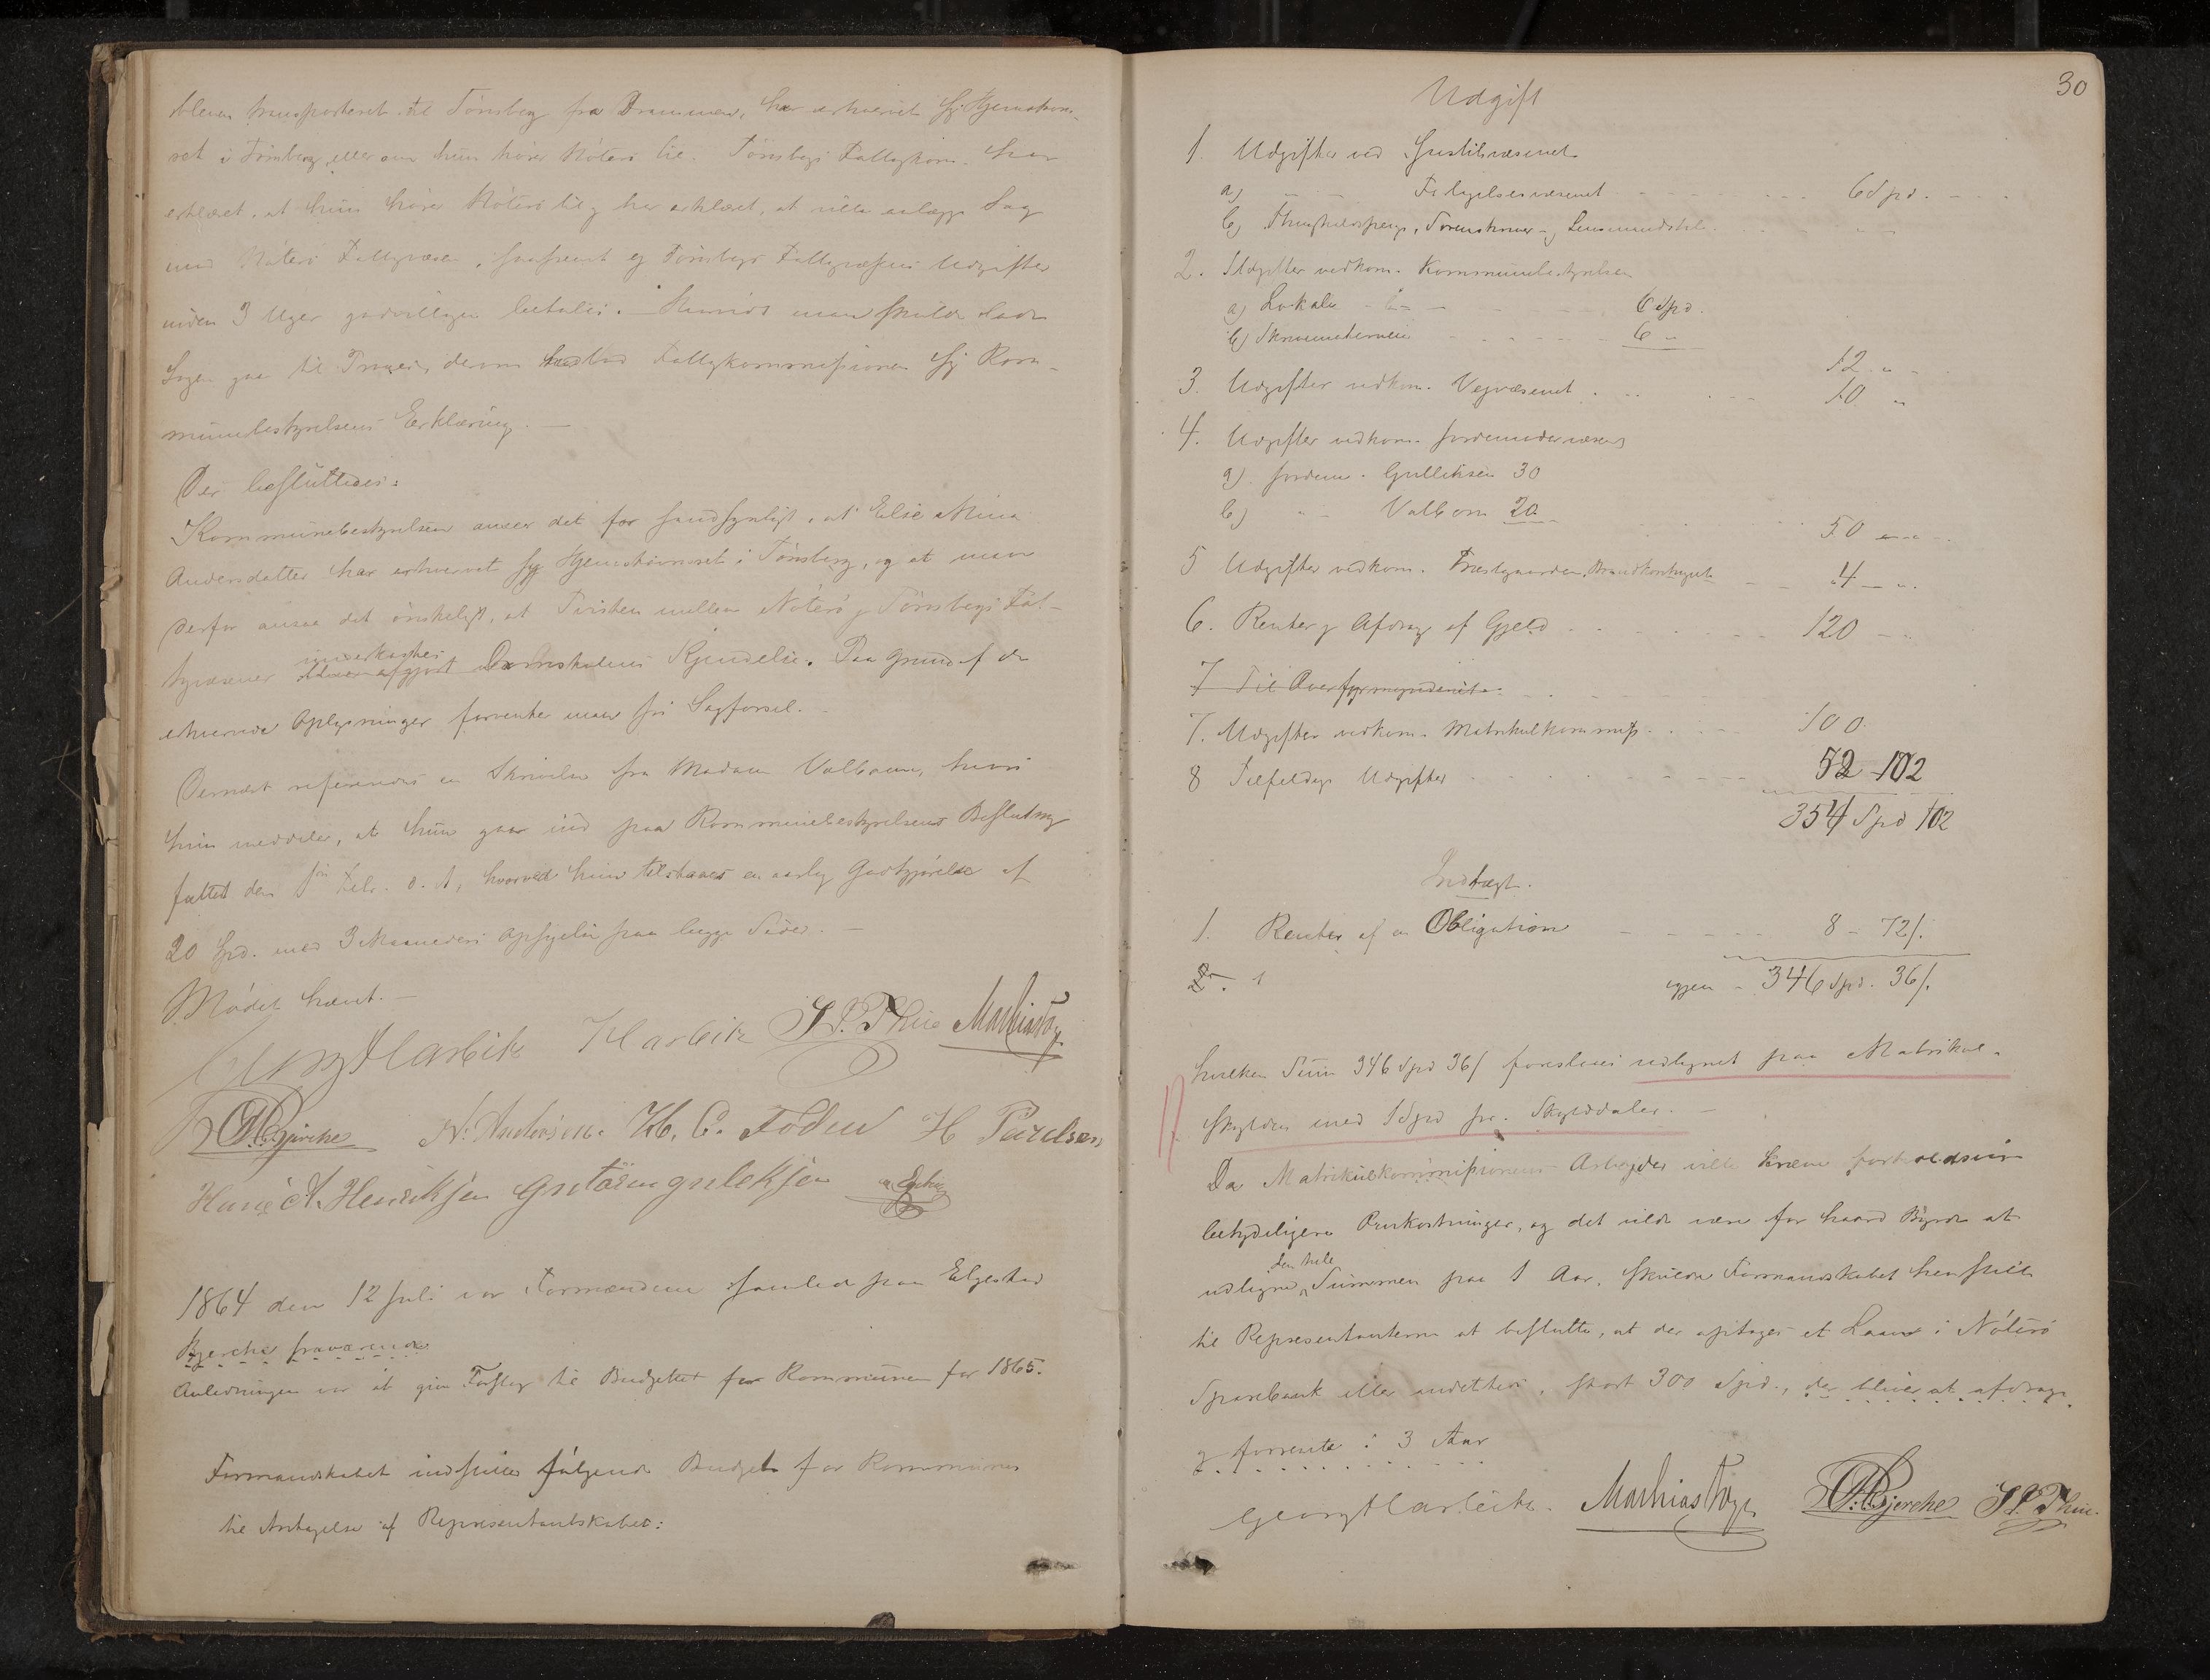 bleven transporteret til Tönsberg fra Drammen, har erhvervet sig Hjemstavns-
ret i Tönsberg eller om hun hører Nöterö til. Tönsbergs Fattigkom. har
erklæret, at hun hører Nöterö til og har erklæret, at ville anlægge Sag
mod Nöterö Fattigvæsen, saafremt ej Tönsbergs Fattigvæsens Udgifter
inden 3 Uger godvilligen betales. Hvorvidt man skulde lade
Sagen gaa til Proces, derom udbad Fattigkommissionen sig Kom-
munebestyrelsens Erklæring. —
Der besluttedes:
Kommunebestyrelsen anseer det for sandsynligt, at Else Mina
Andersdatter har erhvervet sig Hjemstavnsret i Tönsberg, og at man
derfor ansaa det ønskeligt, at Tvisten mellem Nöterö og Tönsbergs Fat-
underkastes
tigvæsener Domstolenes Kjendelse. Paa Grund af de
erhvervede Oplysninger forventer man fri Sagførsel. —
Dernæst refereredes en Skrivelse fra Madam Valbom, hvori
hun meddeler, at hun gaar ind paa Kommunebestyrelsens Beslutning
fattet den Febr. d. A, hvorved hun tilstaaes en aarlig Godtgjörelse af
20 Spd. med 3 Maaneders Opsigelse paa begge Sider. —
Mödet hævet. —
Georg Harbitz Harbitz S P. Thue Mathias Foyn
O. Bjerche N. Andersen. H. C. Foden H Paulsen
Hans A. Henriksen Gutorm Guleksen
1864 den 12 Juli var Formændene samlede paa Elgestad
Bjerche fraværende
Anledningen var at give Forslag til Budgettet for Kommunen for 1865.
Formandskabet indstiller følgende Budget for Kommunen
til Antagelse af Repræsentantskabet:
30
Udgift
1. Udgifter ved Justitsvæsenet
a) — — Fængselsvæsenet 6 Spd.
b) Thingholdspenge, Sorenskriver- og Lensmandstold.
2. Udgifter vedkom. Kommunebestyrelsen
a) Lokale 6 Spd.
b) Skrivematerialier 6 "
12 " -
3. Udgifter vedkom. Vejvæsenet 10 "
4. Udgifter vedkom. Jordemodervæsenet
a) Jordem. Gulliksen 30
b) " Valbom 20
50
5 Udgifter vedkom. Præstgaarden, Brandkontingent 4 — "
6. Renter og Afdrag af Gjeld 120 -
7 Til Overformynderiet
7. Udgifter vedkom. Matrikulkommiss. 100.
8 Tilfeldige Udgifter 52 102
354 Spd 102
Indtægt.
1. Renter af en Obligation 8 - 72/.
2. 1
igjen - 346 Spd. 36/.
hvilken Sum 346 Spd 36/ foreslaaes udlignet paa Matrikul-
skylden med 1 Spd pr. Skylddaler. —
Da Matrikulskommissionens Arbejder ville kræve forholdsvis
betydeligere Omkostninger, og det vilde være for haard Byrde at
den hele
udligne Summen paa 1 Aar, skulde Formandskabet henstille
til Repræsentanterne at beslutte, at der optages et Laan i Nöterö
Sparebank eller andetsteds, stort 300 Spd., der bliver at afdrage
og forrente i 3 Aar
Georg Harbitz. Mathias Foyn O. Bjerche S P. Thue.